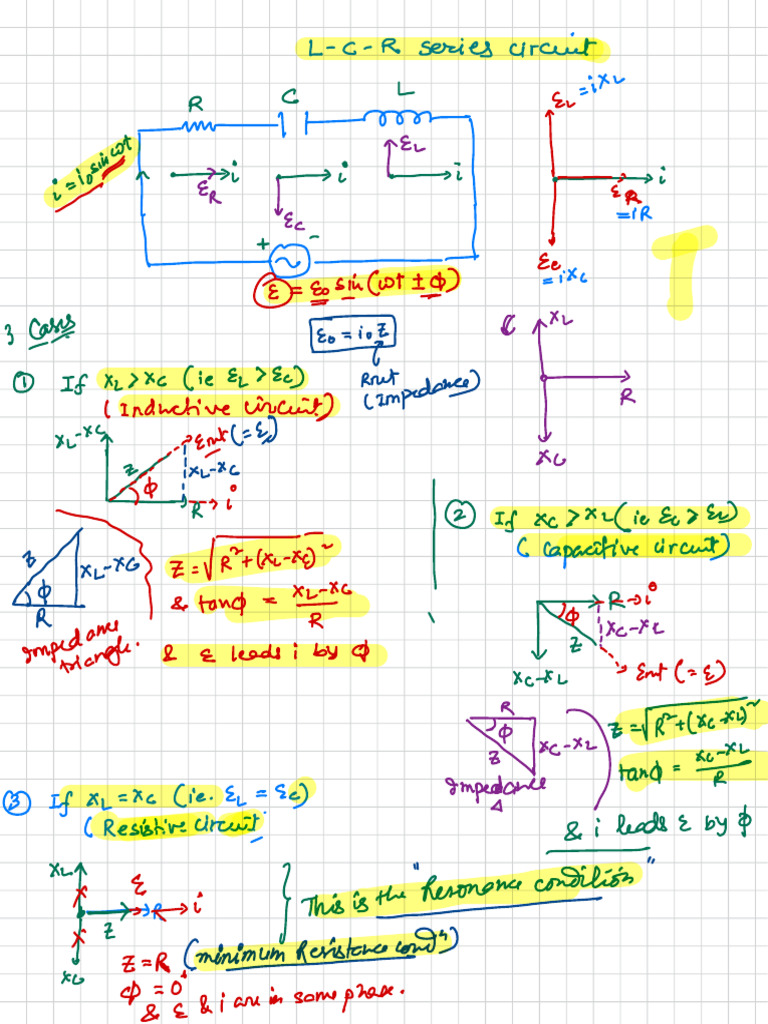 L-C-R series circuit
R C L
i = i₀ sin ωt
i i i
ε_R ε_C ε_L
+ -
ε = ε₀ sin (ωt ± φ)
ε_L = iX_L
i
ε_R = iR
ε_C = iX_C
3 Cases
ε₀ = i₀ Z
(Impedance)
X_L
R
X_C
① If X_L > X_C (ie ε_L > ε_C)
(Inductive circuit)
X_L-X_C
εnet (= ε)
Z
X_L-X_C
φ
R i
Z
X_L-X_C
φ
R
Impedance triangle.
Z = √R² + (X_L-X_C)²
& tanφ = X_L-X_C / R
& ε leads i by φ
② If X_C > X_L (ie ε_C > ε_L)
(Capacitive circuit)
R i
φ
X_C-X_L
Z
X_C-X_L
εnet (= ε)
R
φ
Z
X_C-X_L
Impedance
Δ
Z = √R² + (X_C-X_L)²
tanφ = X_C-X_L / R
& i leads ε by φ
③ If X_L = X_C (ie. ε_L = ε_C)
(Resistive circuit)
X_L
ε
R i
Z
X_C
This is the "Resonance condition"
(minimum Resistance condⁿ)
Z = R
φ = 0°
& ε & i are in same phase.